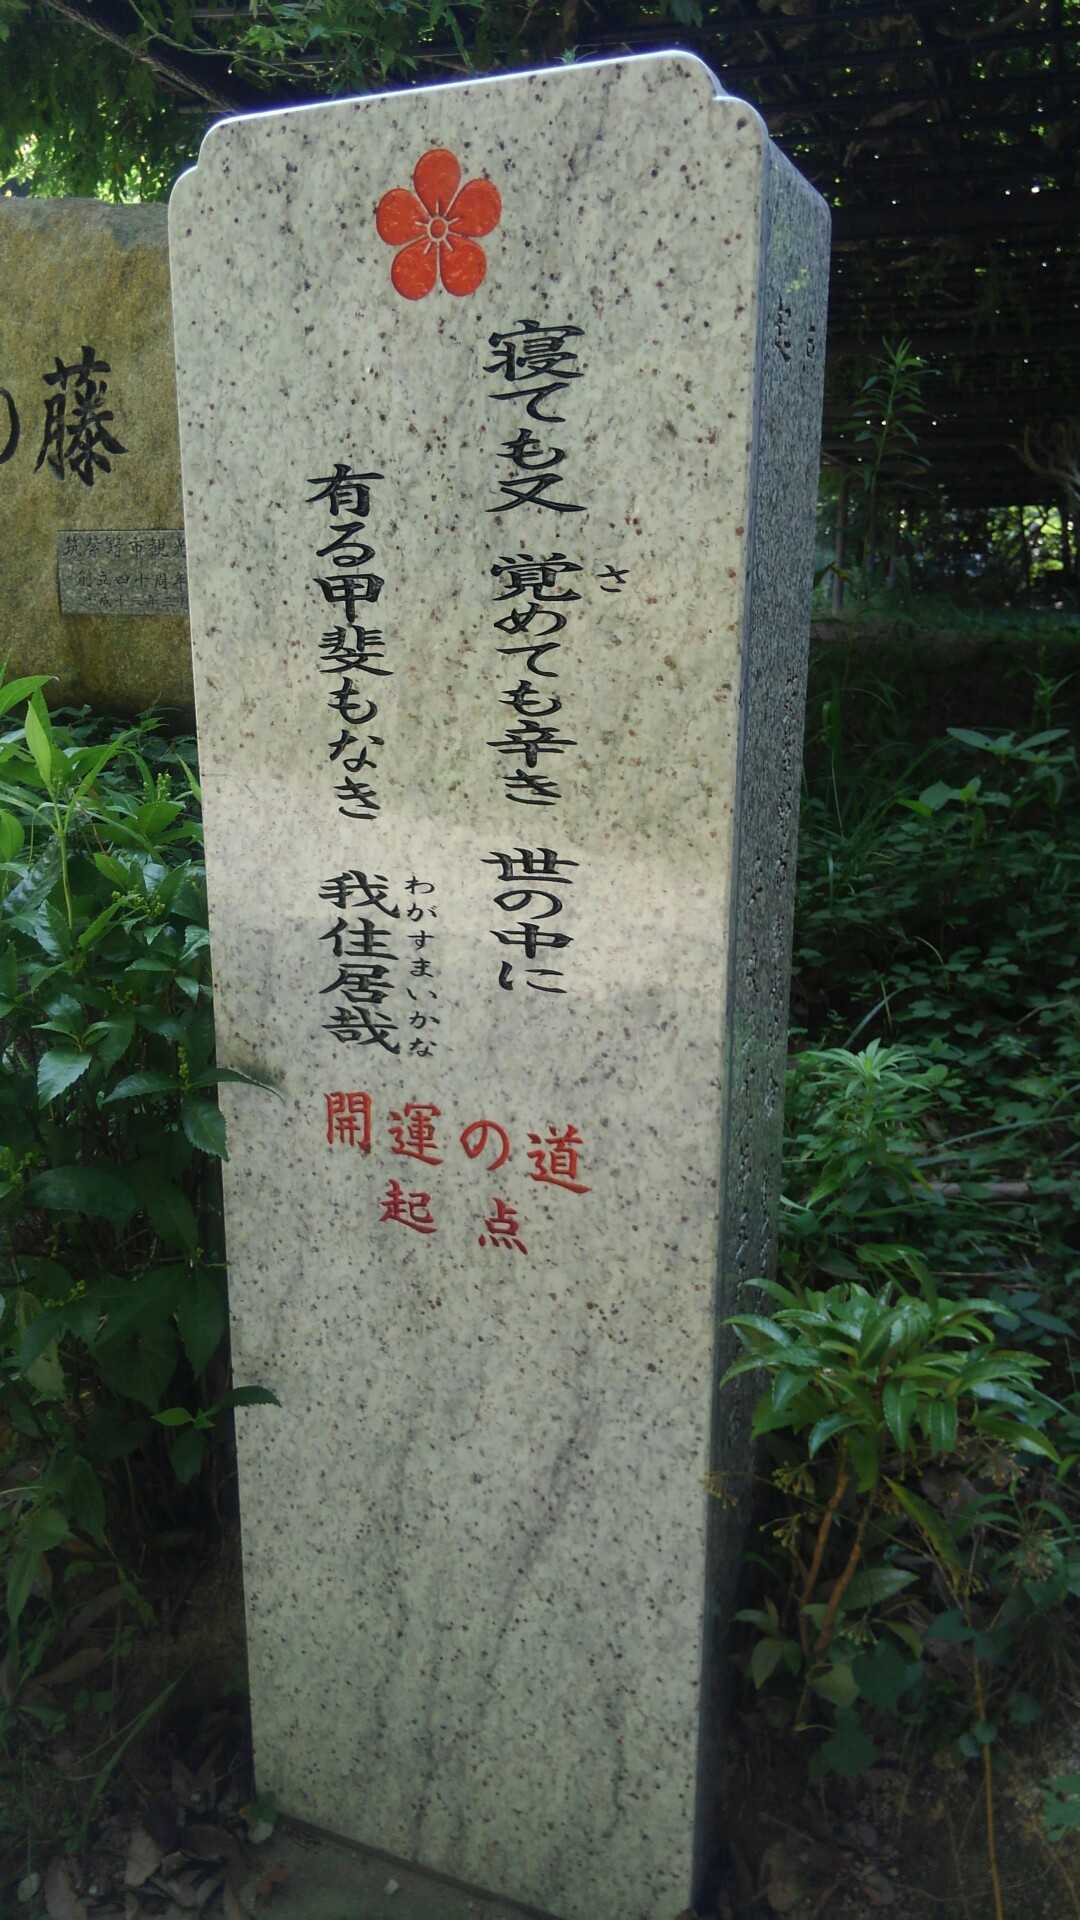 寝ても又 覚めても辛き 世の中に
さ
有る甲斐もなき 我住居哉
わがすまいかな
開運の道
起点
の藤
筑紫野市観光
創立四十周年